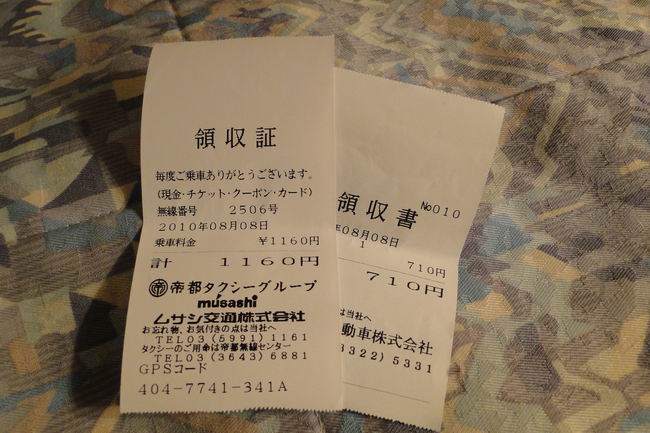 領収証
毎度ご乗車ありがとうございます。
(現金・チケット・クーポン・カード)
無線番号 2506号
2010年08月08日
乗車料金 ¥1160円
計 1160円
帝都タクシーグループ
musashi
ムサシ交通株式会社
お忘れ物、お気付きの点は当社へ
TEL03(5991)1161
タクシーのご用命は帝都無線センター
TEL03(3643)6881
GPSコード
404-7741-341A
領収書 №010
年08月08日
1
710円
710円
は当社へ
動車株式会社
3322)5331